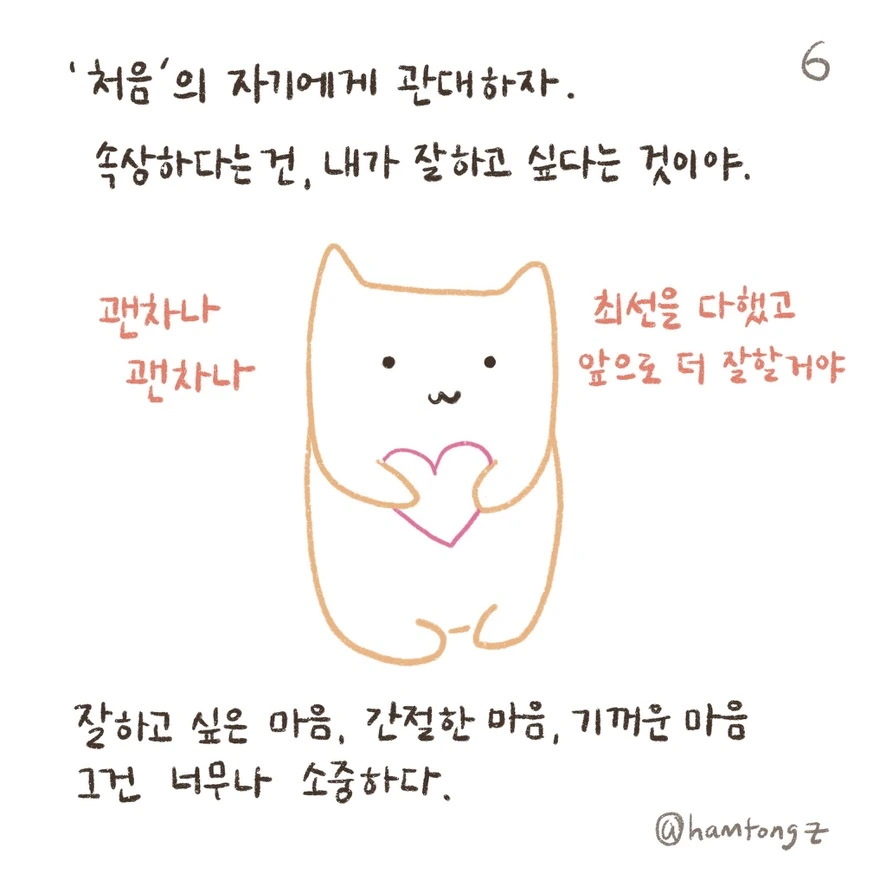 '처음'의 자기에게 관대하자.
6
속상하다는건, 내가 잘하고 싶다는 것이야.
괜차나
괜차나
최선을 다했고
앞으로 더 잘할거야
잘하고 싶은 마음, 간절한 마음, 기꺼운 마음
그건 너무나 소중하다.
@hamtongz